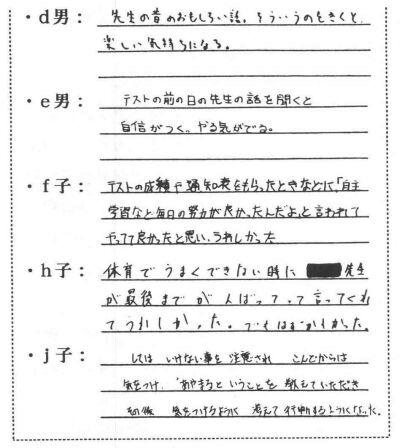 ・d男： 先生の昔のおもしろい話。そういうのをきくと、
楽しい気持ちになる。
・e男： テストの前の日の先生の話を聞くと
自信がつく。やる気がでる。
・f子： テストの成績や通知表をもらったときなどに、「自主
学習など毎日の努力が良かったんだよ」と言われて
やってて良かったと思い、うれしかった
・h子： 体育でうまくできない時に 先生
が最後までがんばってって言ってくれ
てうれしかった。でもはずかしかった。
・j子： してはいけない事を注意され こんどからは
気をつけ、あやまるということを教えていただき
その後 気をつけるように考えて行動するようになった。